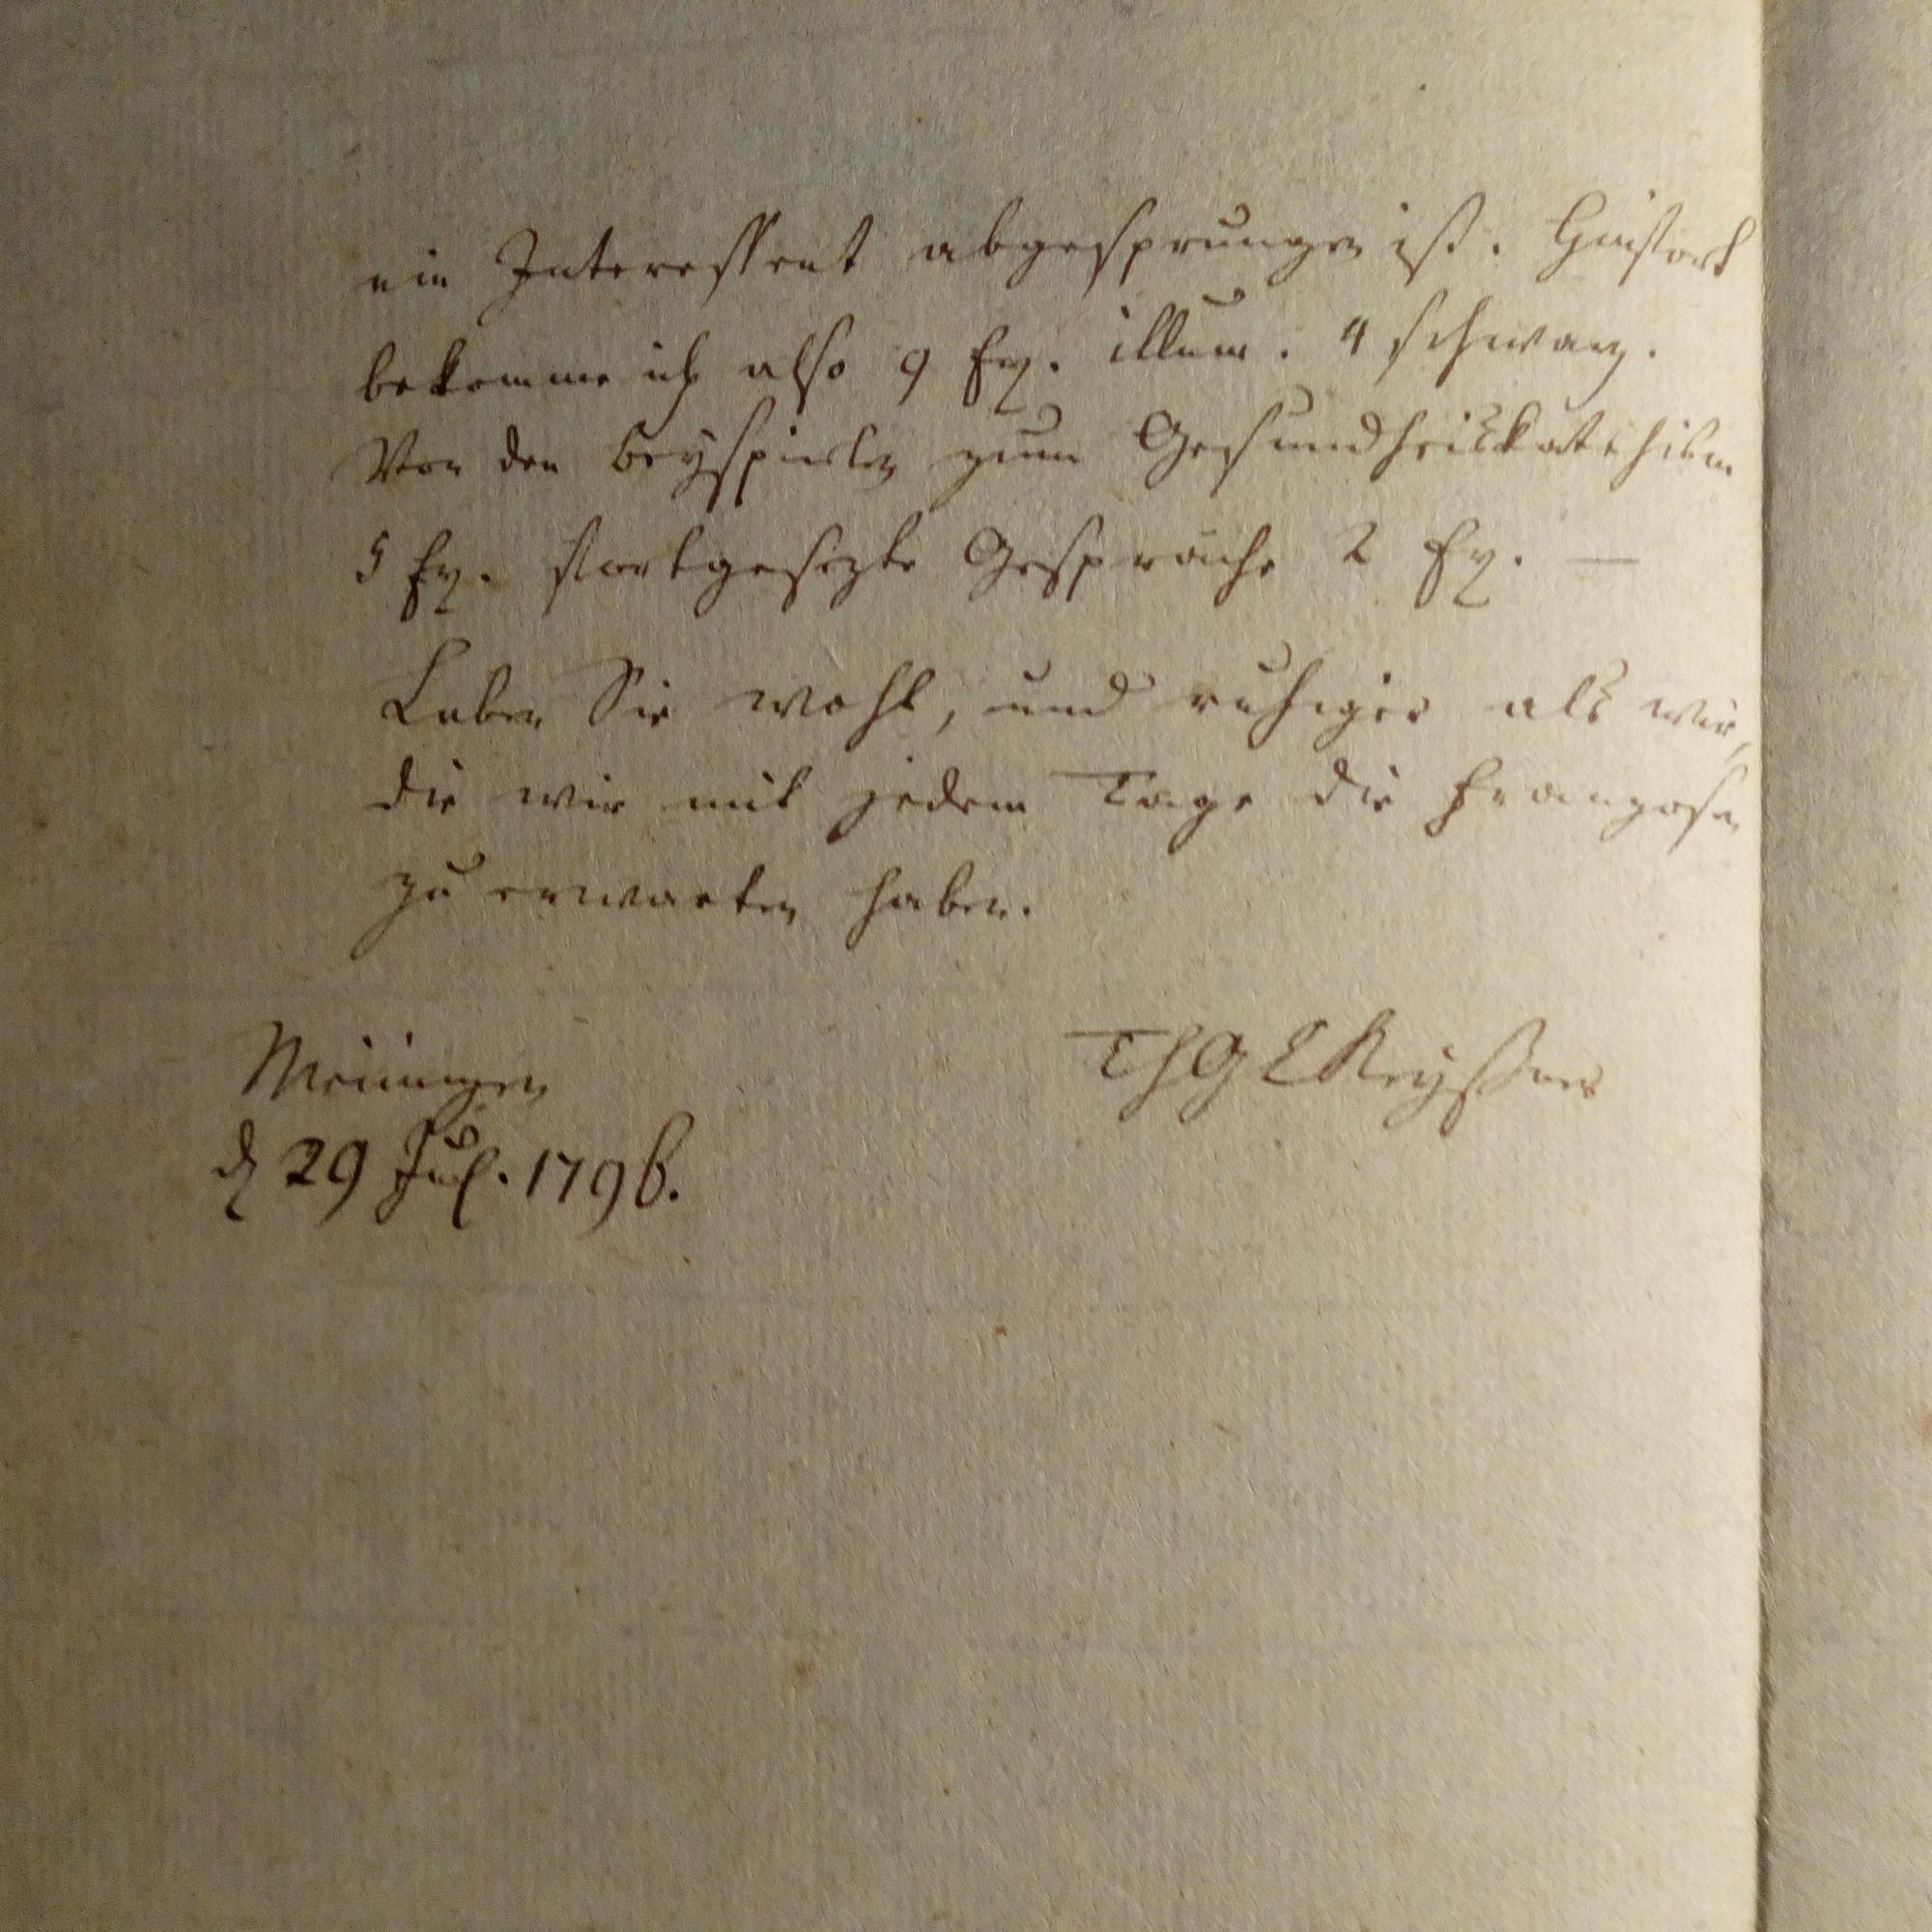 ein Interessent abgesprungen ist. Hinfort
bekomme ich also 9 Ex. illum. 4 schwarz.
Von den Beyspielen zum Gesundheitskatechism
5 Ex. fortgesezte Gespräche 2 Ex. —
Leben Sie wohl, und ruhiger als wir,
die wir mit jedem Tage die Franzosen
zu erwarten haben.
Meiningen
d 29 Jul. 1796.
Th G L Keyßner